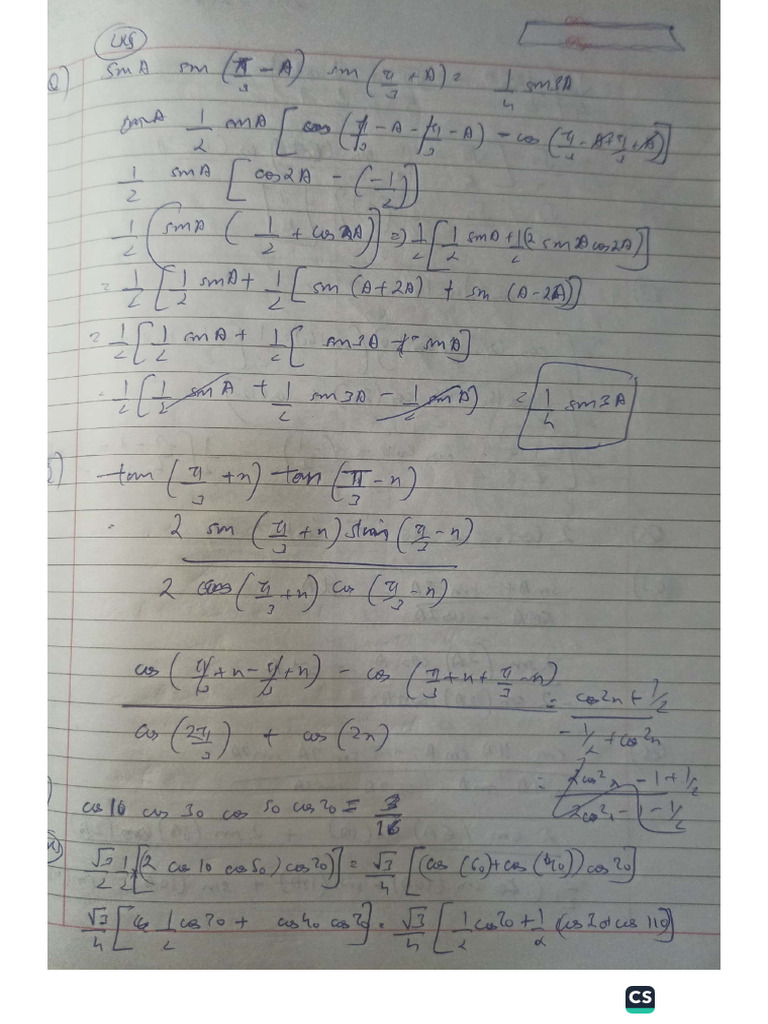 LHS
Q) sin A sin (π/3 - A) sin (π/3 + A) = 1/4 sin 3A
1/2 sin A [cos (π/3 - A - π/3 - A) - cos (π/3 - A + π/3 + A)]
1/2 sin A [cos 2A - (-1/2)]
1/2 (sin A (1/2 + cos 2A)) => 1/2 [1/2 sin A + 1/2 (2 sin A cos 2A)]
= 1/2 [1/2 sin A + 1/2 [sin (A + 2A) + sin (A - 2A)]
= 1/2 [1/2 sin A + 1/2 [sin 3A - sin A]
= 1/2 [1/2 sin A + 1/2 sin 3A - 1/2 sin A] = 1/4 sin 3A
tan (π/3 + n) tan (π/3 - n)
2 sin (π/3 + n) sin (π/3 - n)
2 cos (π/3 + n) cos (π/3 - n)
cos (π/3 + n - π/3 + n) - cos (π/3 + n + π/3 - n)
cos (2π/3) + cos (2n) = cos 2n + 1/2
- 1/2 + cos 2n
= 2cos²n - 1 + 1/2
2cos²n - 1 - 1/2
cos 10 cos 30 cos 50 cos 70 = 3/16
√3/2 1/2 [(2 cos 10 cos 50) cos 70)] = √3/4 [(cos (60) + cos (40)) cos 70]
√3/4 [1/2 cos 70 + cos 40 cos 70] = √3/4 [1/2 cos 70 + 1/2 (cos 30 + cos 110)]
CS